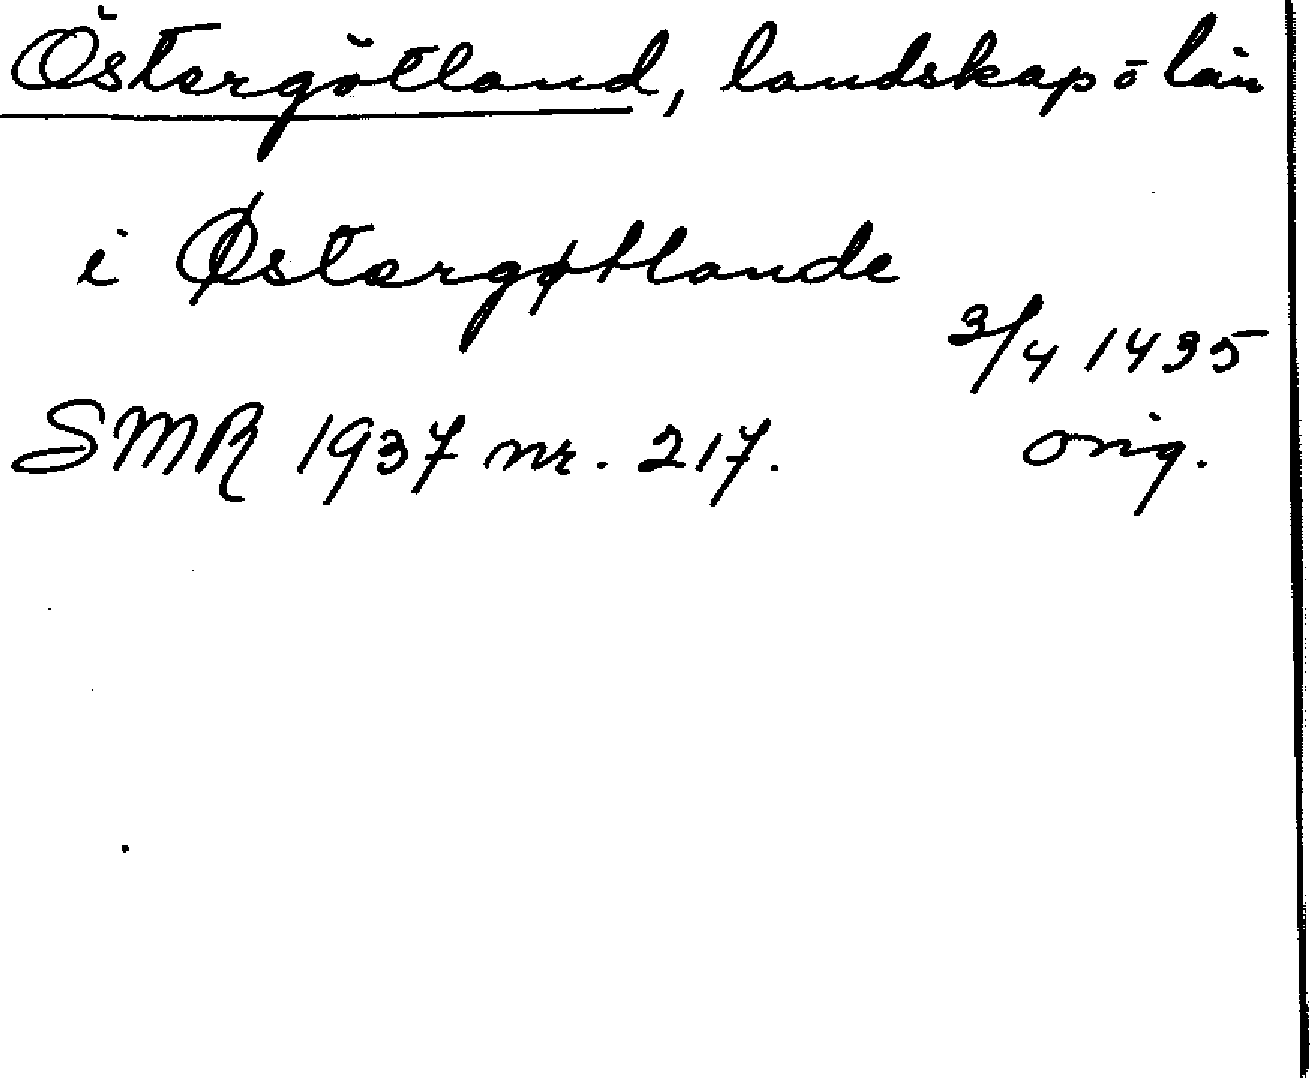 Östergötland, landskap o län
i Østergøtlande
3/4 1435
SMR 1937 nr. 217. orig.